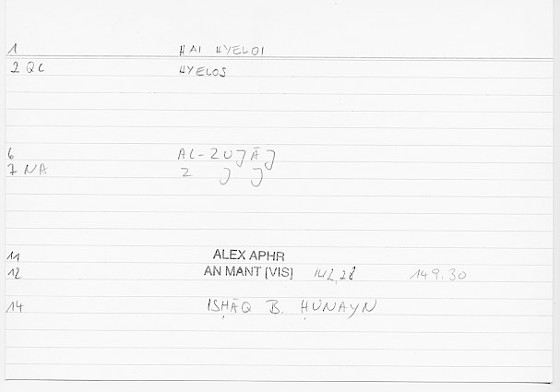 1 HAI HYELOI
2 QL HYELOS
6 AL-ZUJĀJ
7 NA Z J J
11 ALEX APHR
12 AN MANT (VIS) 142,28 149.30
14 ISḤĀQ B. ḤUNAYN